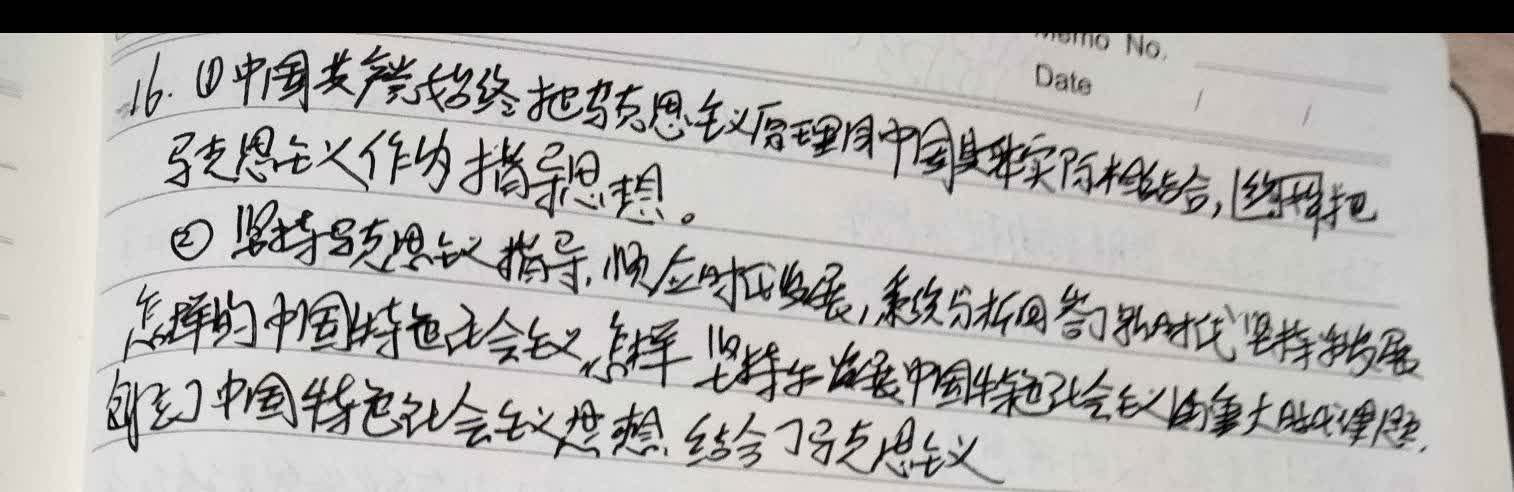 Memo No.
Date / /
16. ①中国共产党始终把马克思主义原理同中国具体实际相结合,始终把
马克思主义作为指导思想。
② 坚持马克思主义指导,顺应时代发展,系统分析回答了新时代坚持和发展
怎样的中国特色社会主义,怎样坚持和发展中国特色社会主义的重大时代课题,
创立了中国特色社会主义思想,结合了马克思主义